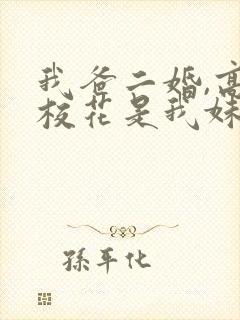 我爸二婚,高
校花是我妹
孫平化